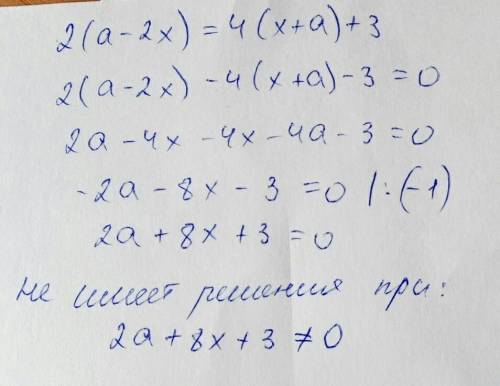 2(a-2x)=4(x+a)+3
2(a-2x)-4(x+a)-3=0
2a-4x-4x-4a-3=0
-2a-8x-3=0 /:(-1)
2a+8x+3=0
не имеет решения при:
2a+8x+3≠0